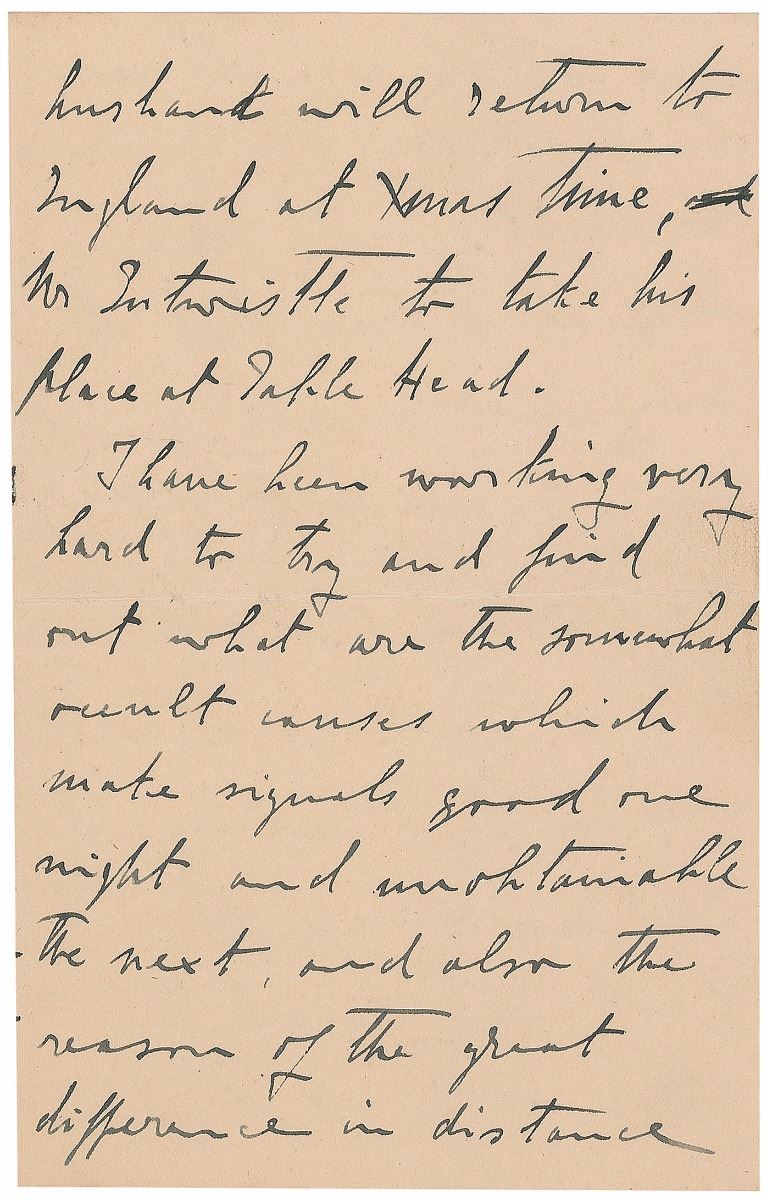 husband will return to
England at Xmas time, and
Mr Entwistle to take his
place at Table Head.
I have been working very
hard to try and find
out what are the somewhat
occult causes which
make signals good one
night and unobtainable
the next, and also the
reason of the great
difference in distance